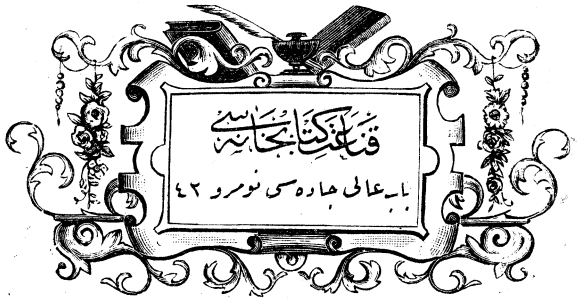 قناعت كتابخانه سی
باب عالی جاده سی نومرو ٤٢